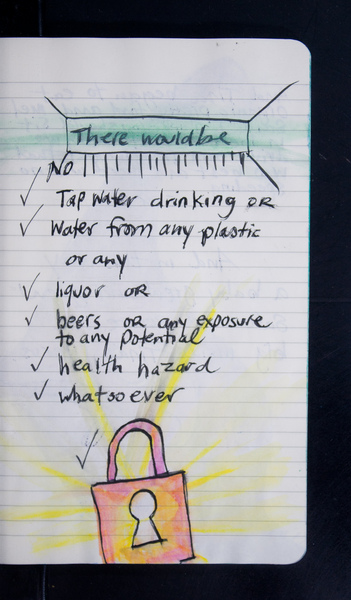 There would be
No
Tap water drinking OR
Water from any plastic
or any
liquor OR
beers OR any exposure
to any potential
health hazard
whatsoever